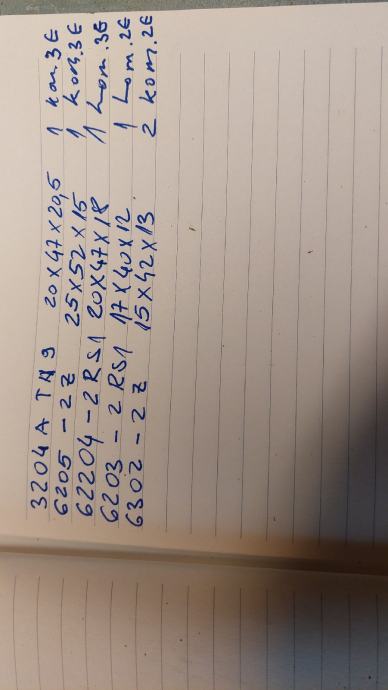 3204 A TN9 20x47x20,5 1 kom. 3€
6205 - 2Z 25x52x15 1 kom. 3€
62204 - 2RS1 20x47x18 1 kom. 3€
6203 - 2RS1 17x40x12 1 kom. 2€
6302 - 2Z 15x42x13 2 kom. 2€